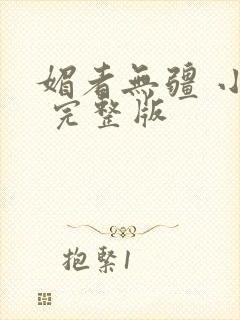 媚者無疆 小
完整版
抱緊1